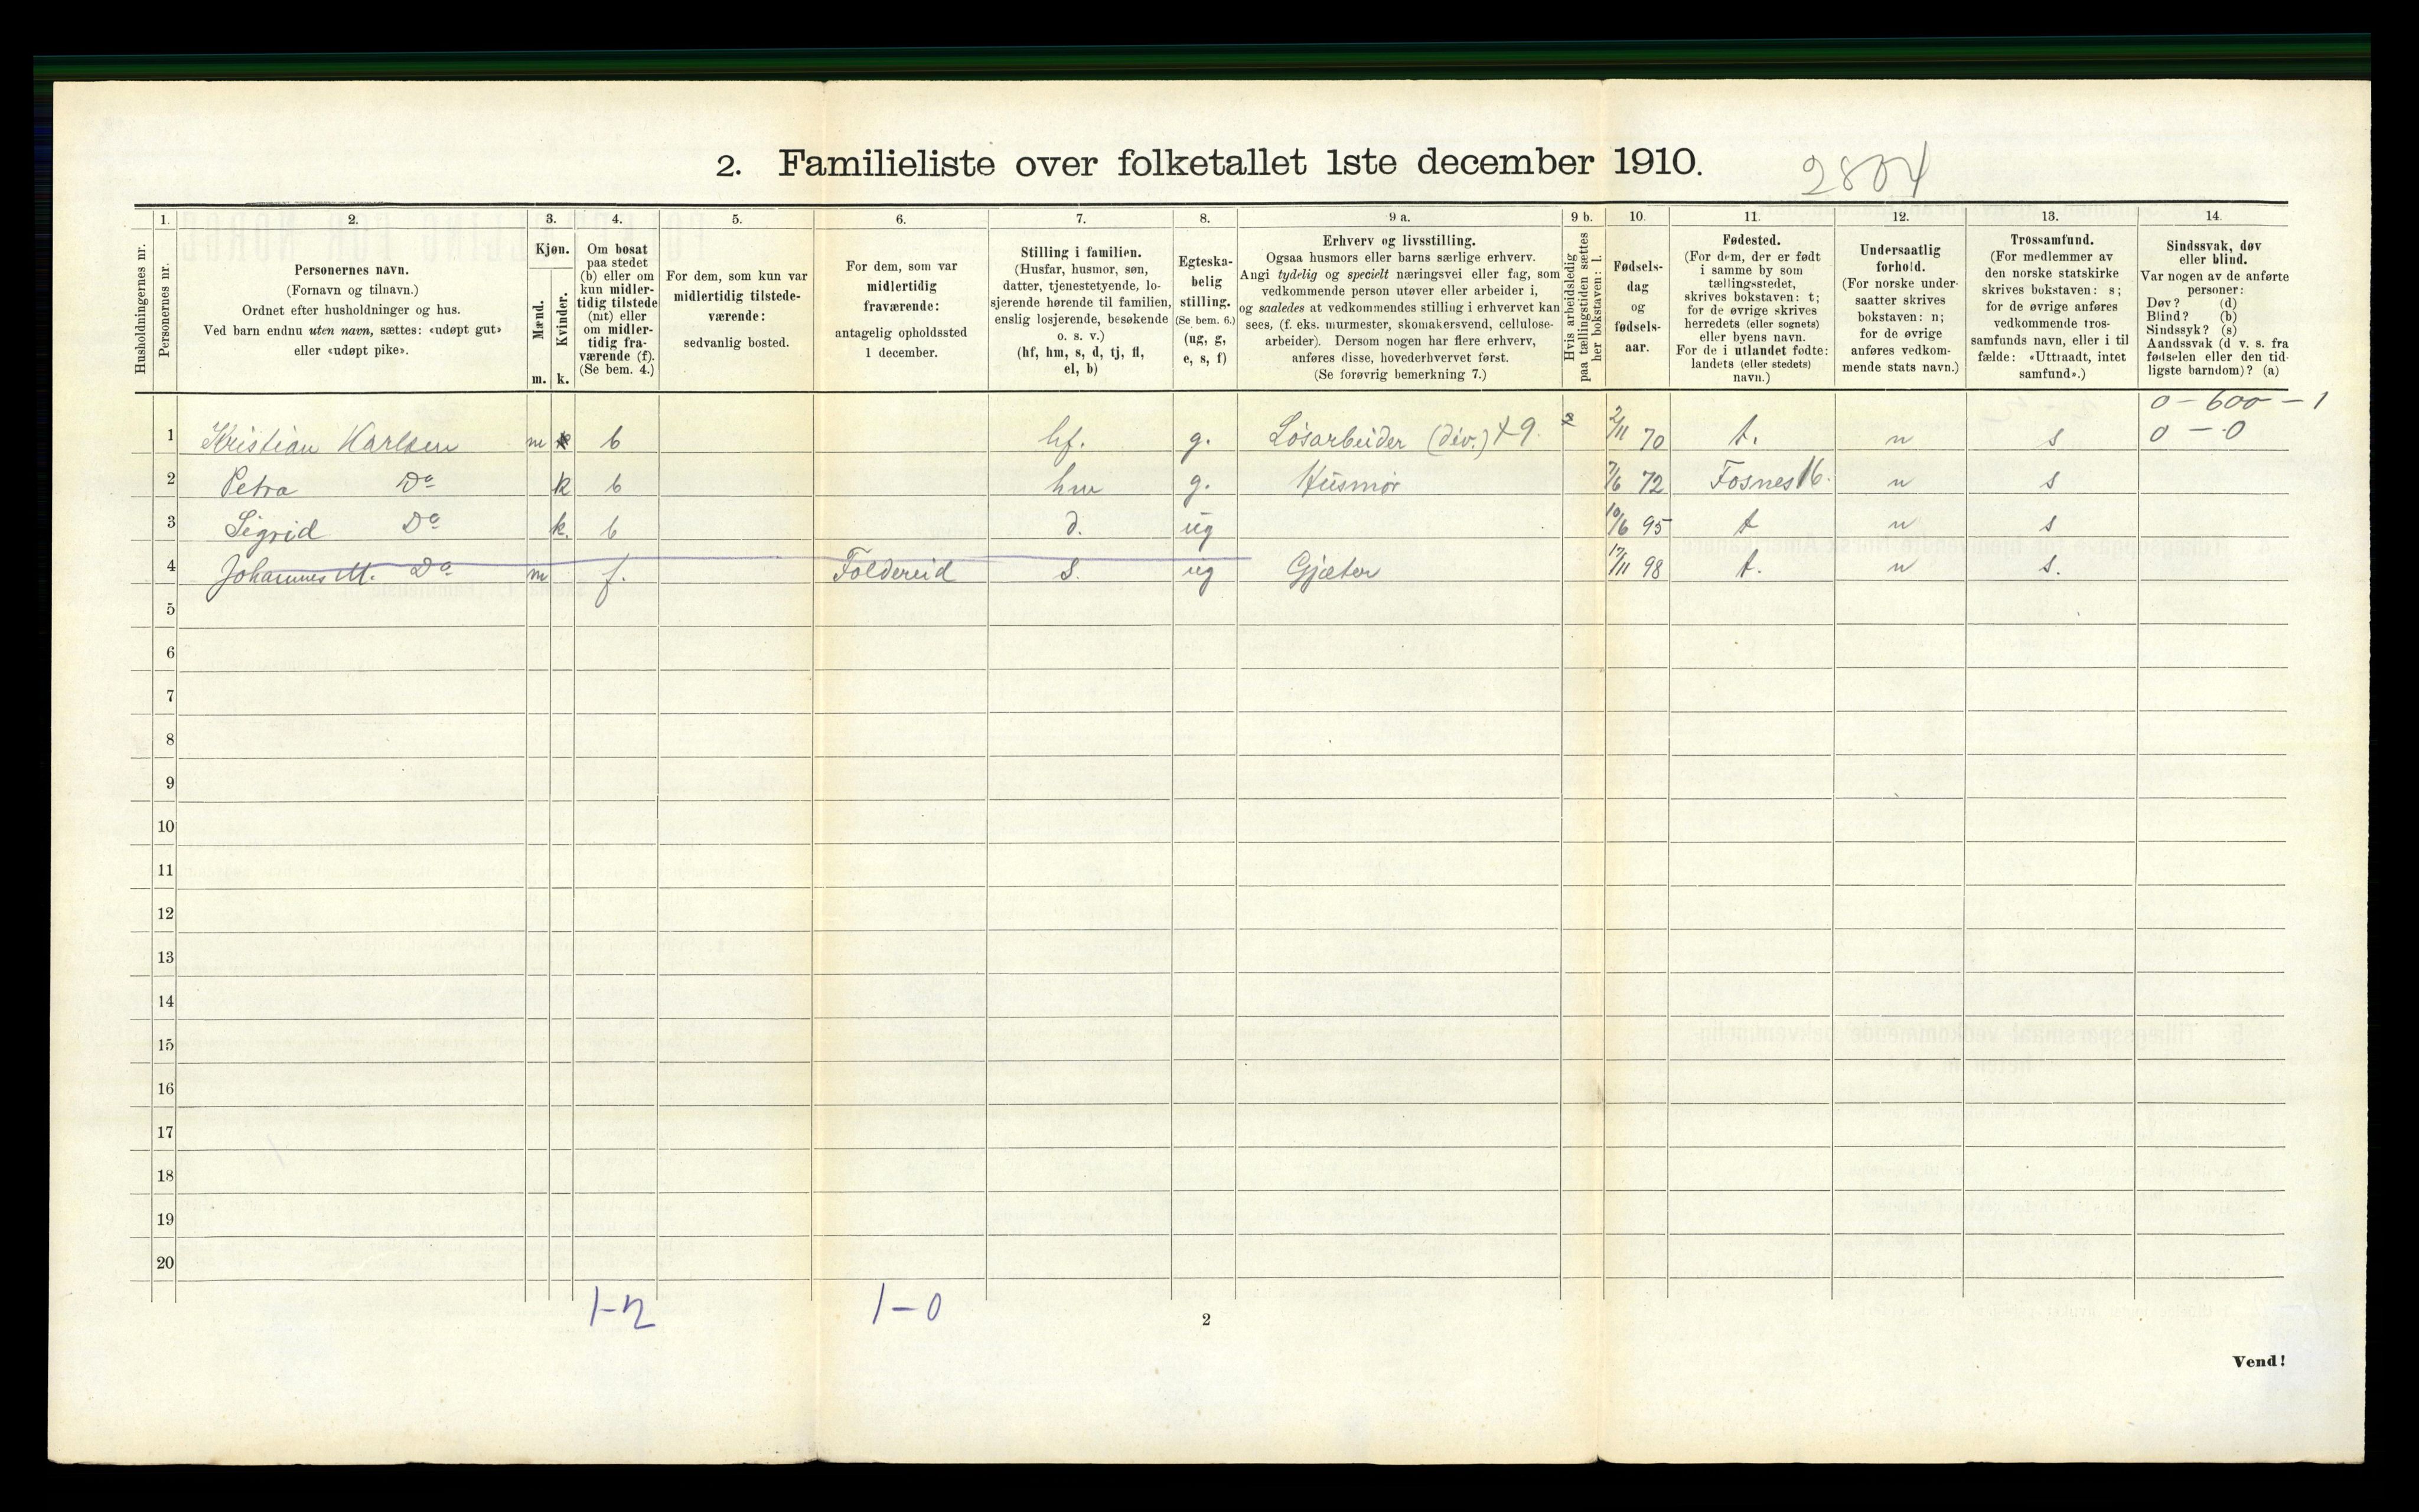 2. Familieliste over folketallet 1ste december 1910.
2804
Husholdningernes nr.
1.
Personernes nr.
2.
Personernes navn.
(Fornavn og tilnavn.)
Ordnet efter husholdninger og hus.
Ved barn endnu uten navn, sættes: «udøpt gut»
eller «udøpt pike».
3.
Kjøn.
Mænd.
Kvinder.
m. k.
4.
Om bosat
paa stedet
(b) eller om
kun midler-
tidig tilstede
(mt) eller
om midler-
tidig fra-
værende (f).
(Se bem. 4.)
5.
For dem, som kun var
midlertidig tilstede-
værende:
sedvanlig bosted.
6.
For dem, som var
midlertidig
fraværende:
antagelig opholdssted
1 december.
7.
Stilling i familien.
(Husfar, husmor, søn,
datter, tjenestetyende, lo-
sjerende hørende til familien,
enslig losjerende, besøkende
o. s. v.)
(hf, hm, s, d, tj, fl,
el, b)
8.
Egteska-
belig
stilling.
(Se bem. 6.)
(ug, g,
e, s, f)
9 a.
Erhverv og livsstilling.
Ogsaa husmors eller barns særlige erhverv.
Angi tydelig og specielt næringsvei eller fag, som
vedkommende person utøver eller arbeider i,
og saaledes at vedkommendes stilling i erhvervet kan
sees, (f. eks. murmester, skomakersvend, cellulose-
arbeider). Dersom nogen har flere erhverv,
anføres disse, hovederhvervet først.
(Se forøvrig bemerkning 7.)
9 b.
Hvis arbeidsledig
paa tællingstiden sættes
her bokstaven: l.
10.
Fødsels-
dag
og
fødsels-
aar.
11.
Fødested.
(For dem, der er født
i samme by som
tællingsstedet,
skrives bokstaven: t;
for de øvrige skrives
herredets (eller sognets)
eller byens navn.
For de i utlandet fødte:
landets (eller stedets)
navn.)
12.
Undersaatlig
forhold.
(For norske under-
saatter skrives
bokstaven: n;
for de øvrige
anføres vedkom-
mende stats navn.)
13.
Trossamfund.
(For medlemmer av
den norske statskirke
skrives bokstaven: s;
for de øvrige anføres
vedkommende tros-
samfunds navn, eller i til
fælde: «Uttraadt, intet
samfund».)
14.
Sindssvak, døv
eller blind.
Var nogen av de anførte
personer:
Døv? (d)
Blind? (b)
Sindssyk? (s)
Aandssvak (d v. s. fra
fødselen eller den tid-
ligste barndom)? (a)
0 - 600 - 1
1 Kristian Karlsen m b hf. g. Løsarbeider (div.) 2/11 70 t. n s 0 - 0
2 Petra Do k b hm g. Husmor 7/6 72 Fosnes 16. n s
3 Sigrid Do k. b d. ug 10/6 95 t n s
4 Johannes M. Do m f. Foldereid s. ug Gjæter 17/11 98 t. n s.
5
6
7
8
9
10
11
12
13
14
15
16
17
18
19
20
1-2 1-0
2
Vend!